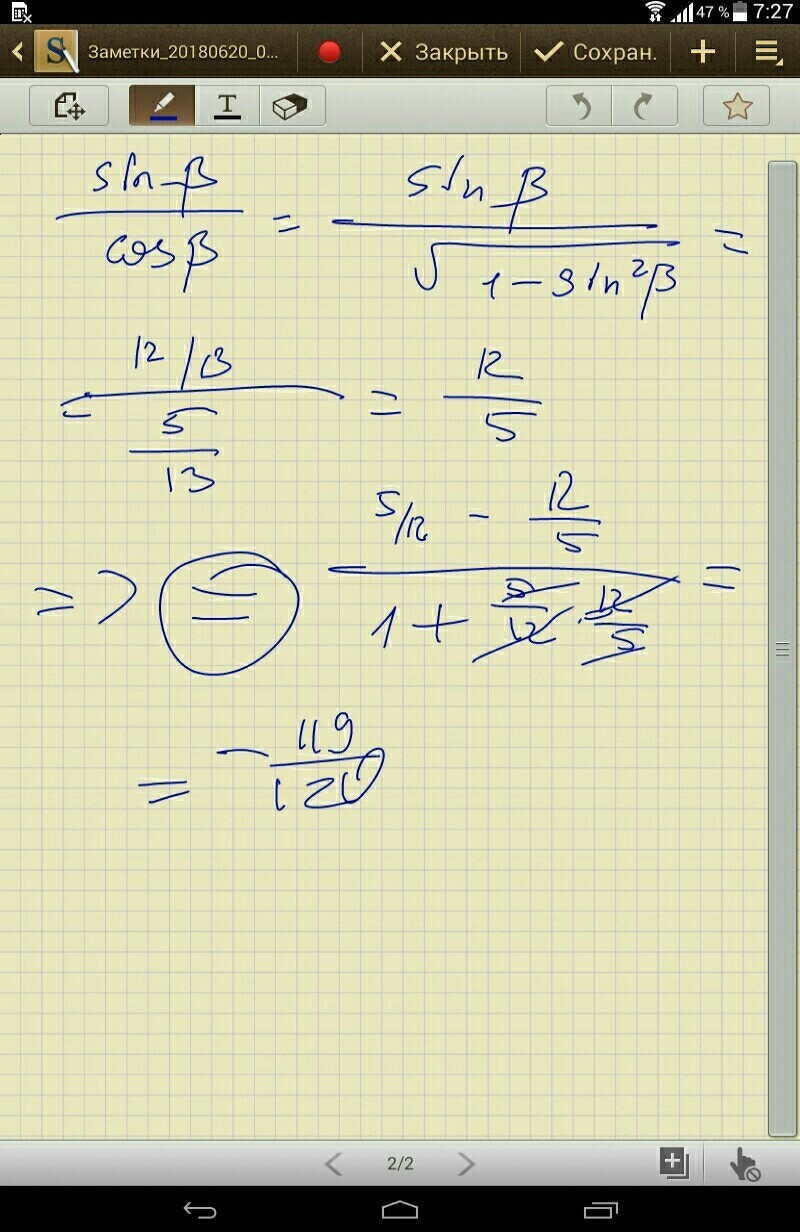 47 % 7:27
Заметки_20180620_0... Закрыть Сохран.
T
sin β / cos β = sin β / √(1 - sin²β) =
= (12/13) / (5/13) = 12/5
=> = (5/12 - 12/5) / (1 + 5/12 · 12/5) =
= - 119/120
2/2